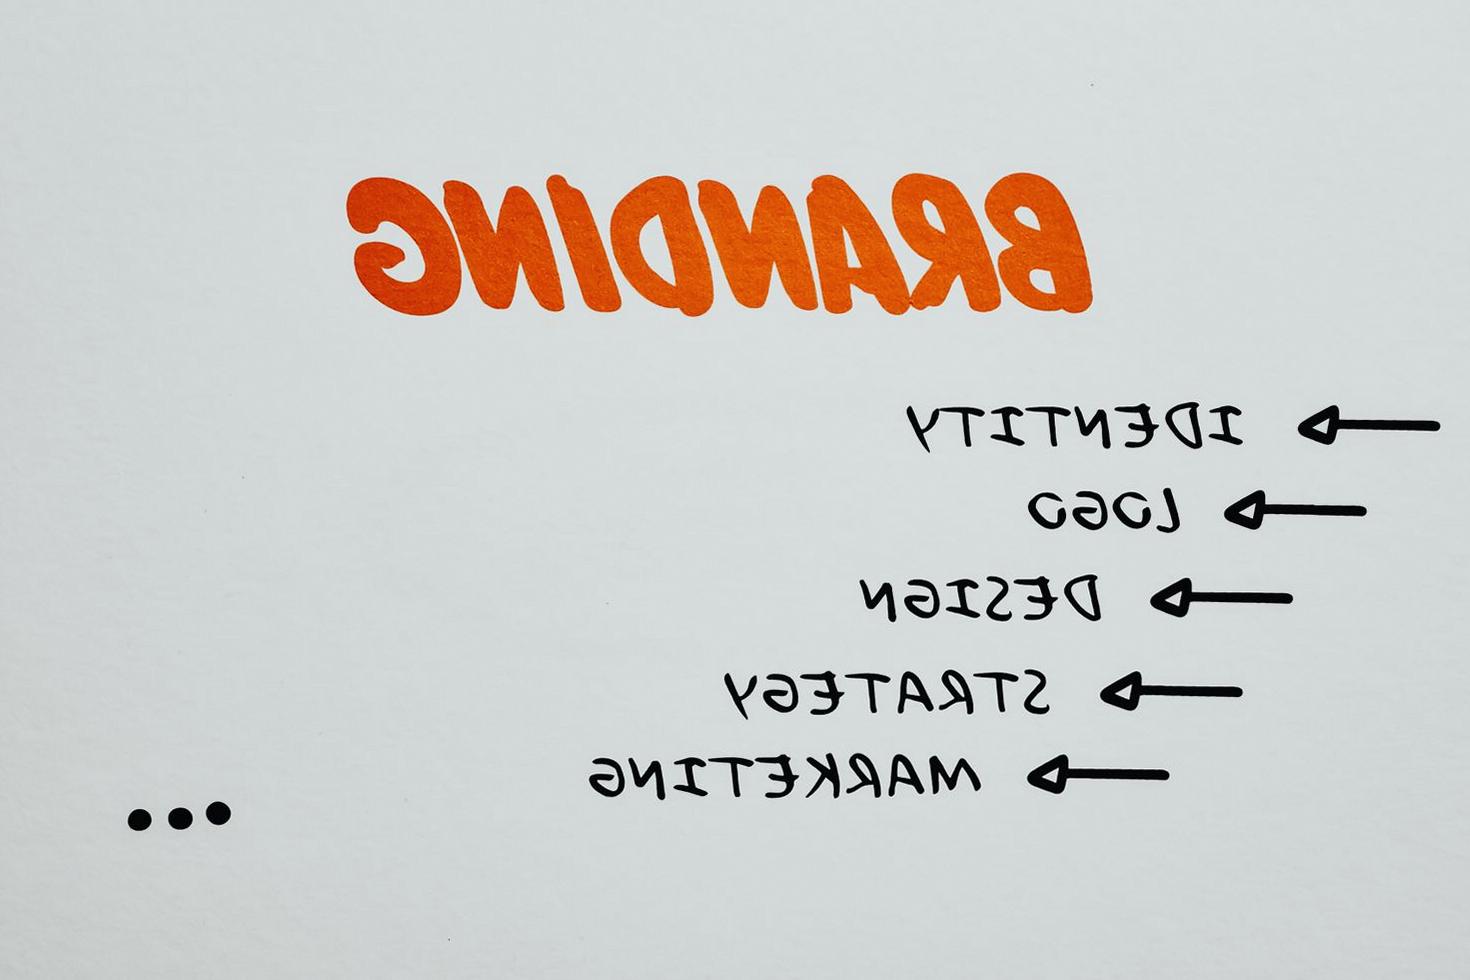 BRANDING
IDENTITY
LOGO
DESIGN
STRATEGY
MARKETING
...